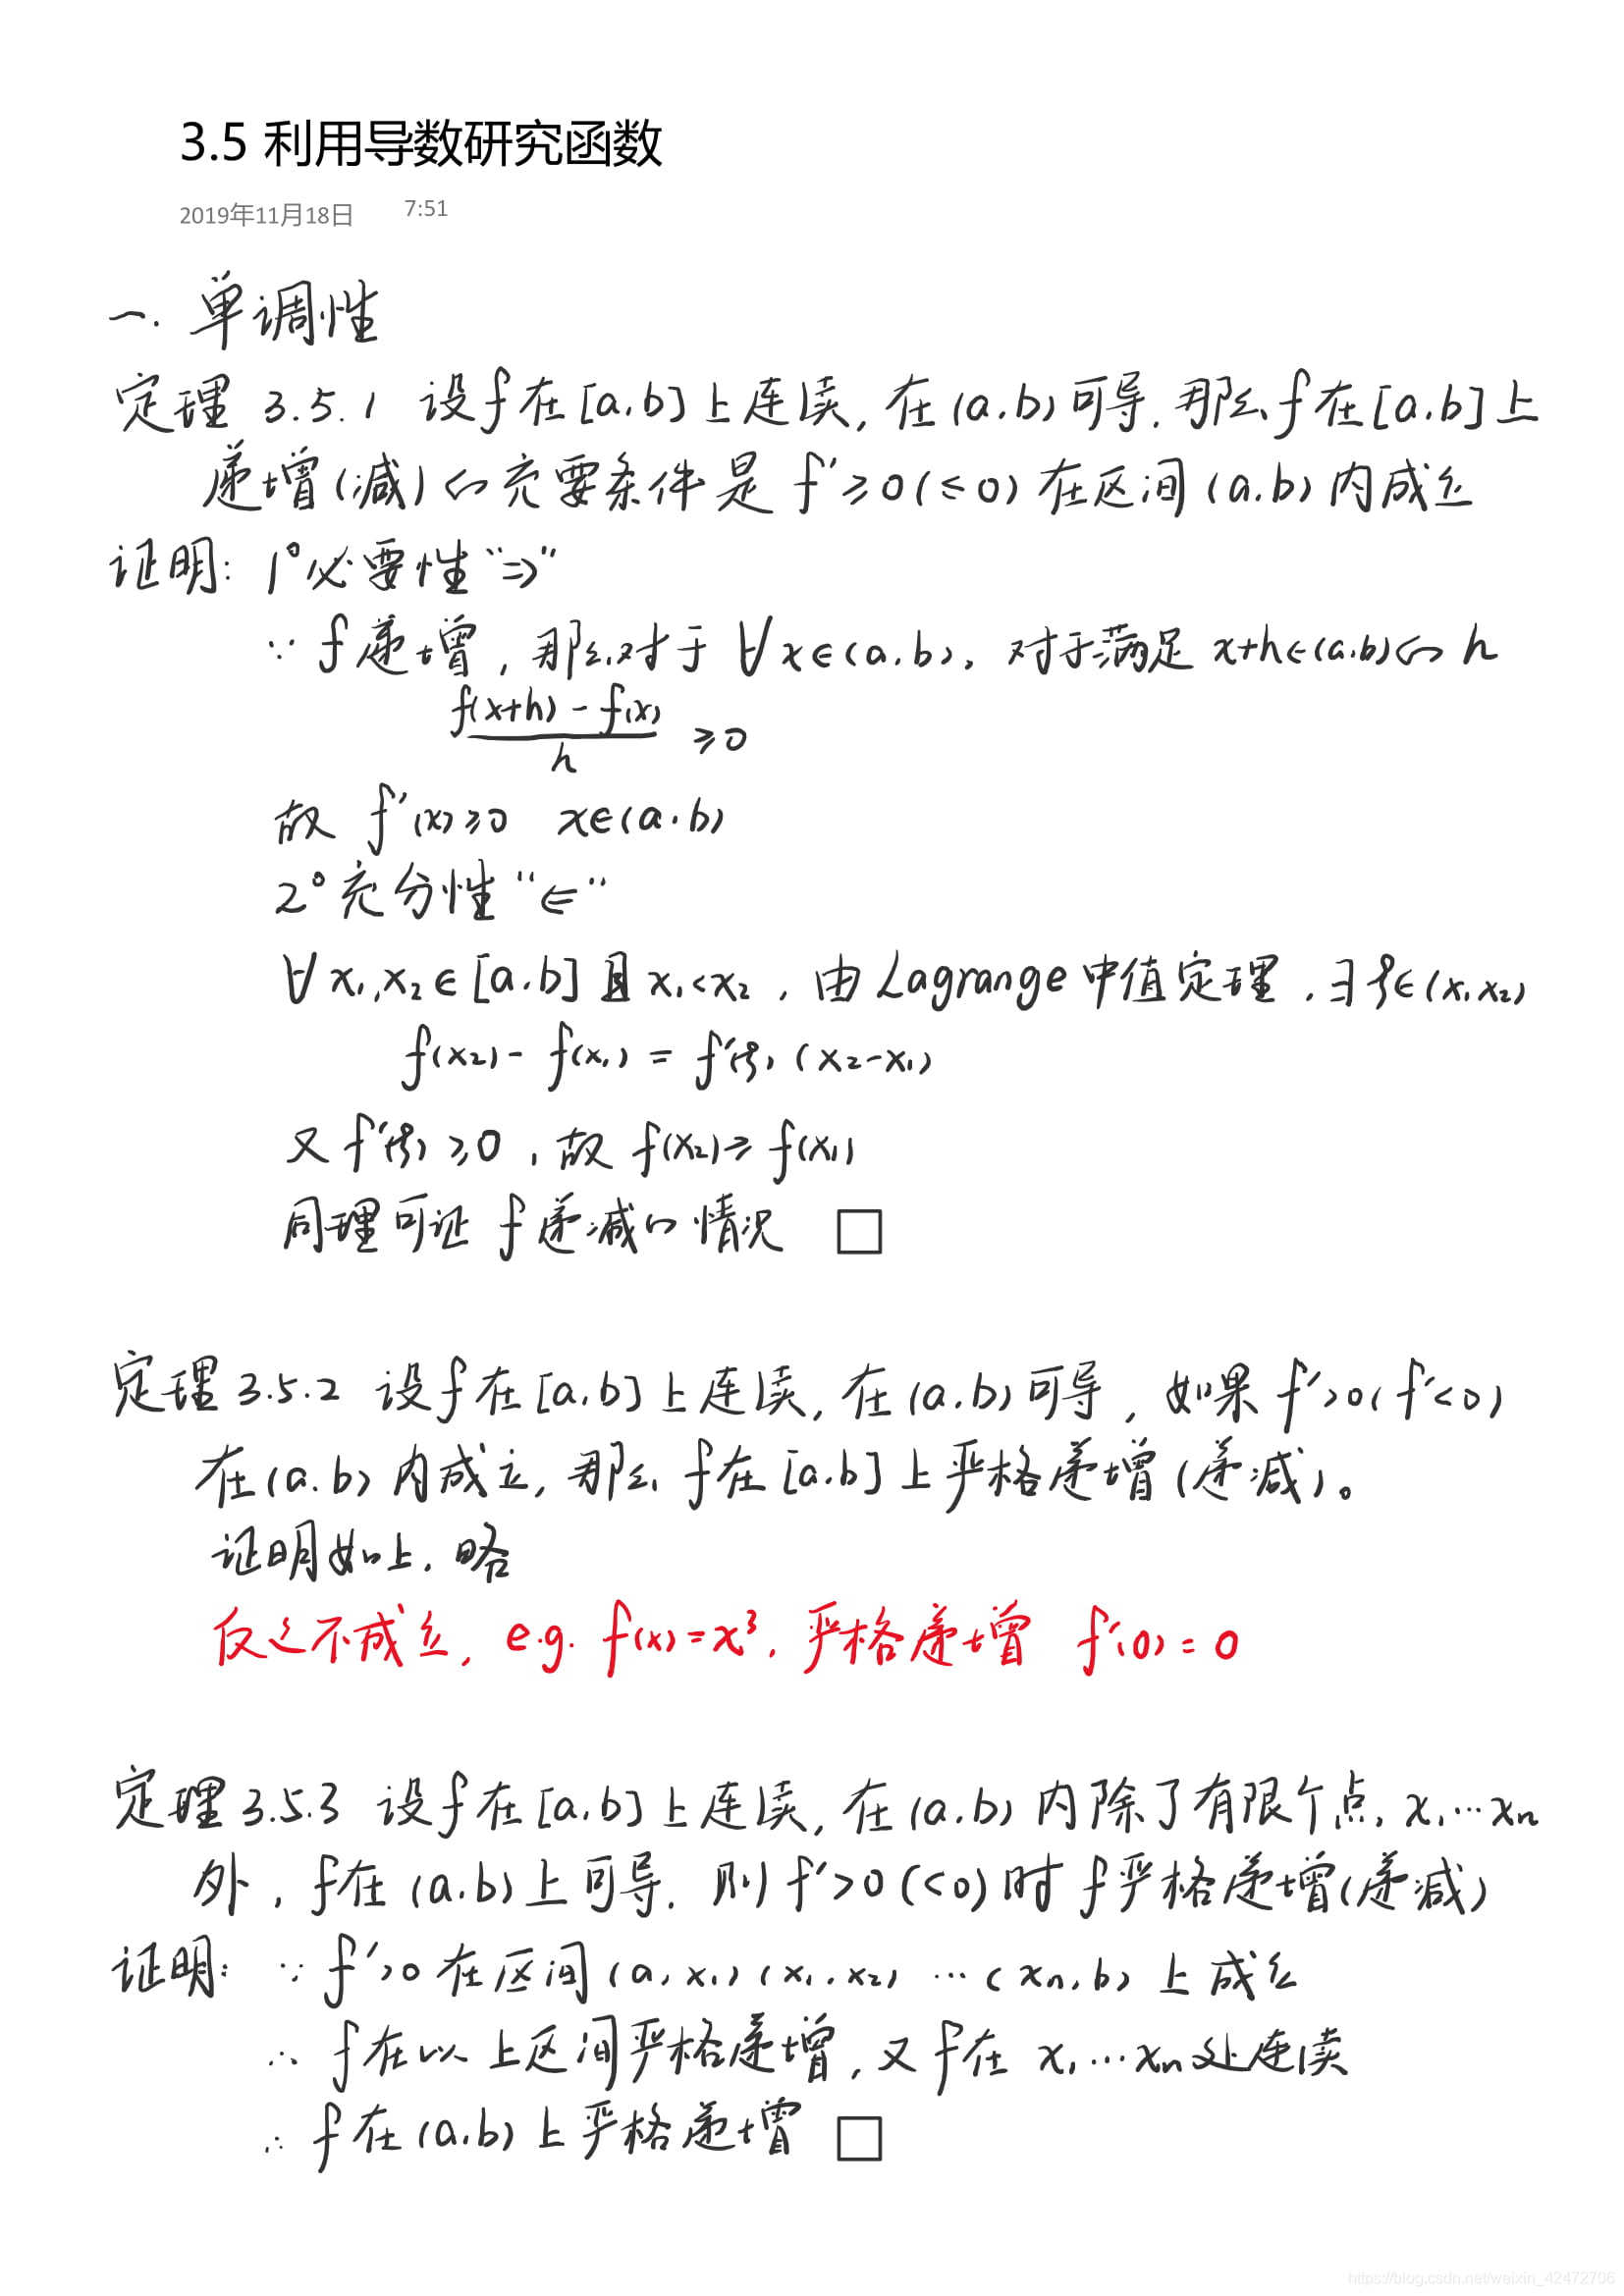 3.5 利用导数研究函数
2019年11月18日 7:51
一. 单调性
定理 3.5.1 设f在[a,b]上连续,在(a,b)可导.那么f在[a,b]上
递增(减)的充要条件是 f'≥0(≤0)在区间(a,b)内成立
证明: 1°必要性"⇒"
∵ f递增,那么对于∀x∈(a,b),对于满足 x+h∈(a,b)的h
f(x+h)-f(x)
h ≥0
故 f'(x)≥0 x∈(a,b)
2°充分性"⇐"
∀x₁,x₂∈[a,b]且x₁<x₂,由Lagrange中值定理,∃ξ∈(x₁,x₂)
f(x₂)-f(x₁)=f'(ξ)(x₂-x₁)
又 f'(ξ)≥0,故 f(x₂)≥f(x₁)
同理可证 f递减的情况 □
定理3.5.2 设f在[a,b]上连续,在(a,b)可导,如果f'>0(f'<0)
在(a,b)内成立,那么f在[a,b]上严格递增(递减)。
证明如上.略
反之不成立,e.g. f(x)=x³,严格递增 f'(0)=0
定理3.5.3 设f在[a,b]上连续,在(a,b)内除了有限个点,x₁…xₙ
外,f在(a,b)上可导.则f'>0(<0)时f严格递增(递减)
证明: ∵ f'>0在区间(a,x₁)(x₁,x₂)…(xₙ,b)上成立
∴ f在以上区间严格递增,又f在x₁…xₙ处连续
∴ f在(a,b)上严格递增 □
https://blog.csdn.net/weixin_42472706